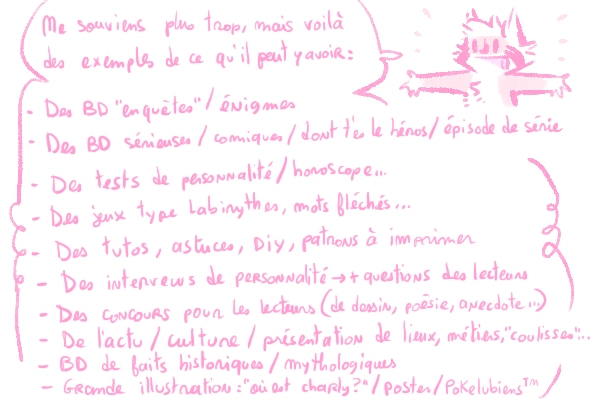 Me souviens plus trop, mais voilà
des exemples de ce qu'il peut y avoir :
- Des BD "enquêtes" / énigmes
- Des BD sérieuses / comiques / dont t'es le héros / épisode de série
- Des tests de personnalité / horoscope...
- Des jeux type Labirythes, mots fléchés...
- Des tutos, astuces, Diy, patrons à imprimer
- Des interviews de personnalité → + questions des lecteurs
- Des concours pour les lecteurs (de dessin, poésie, anecdote...)
- De l'actu / culture / présentation de lieux, métiers, "coulisses"...
- BD de faits historiques / mythologiques
- Grande illustration : "où est charly ?" / poster / Pokelubiens™ /